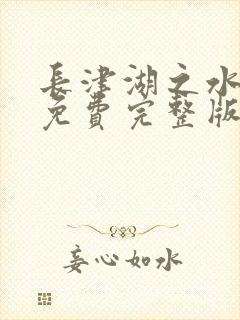 長津湖之水
免費完整版
妄心如水